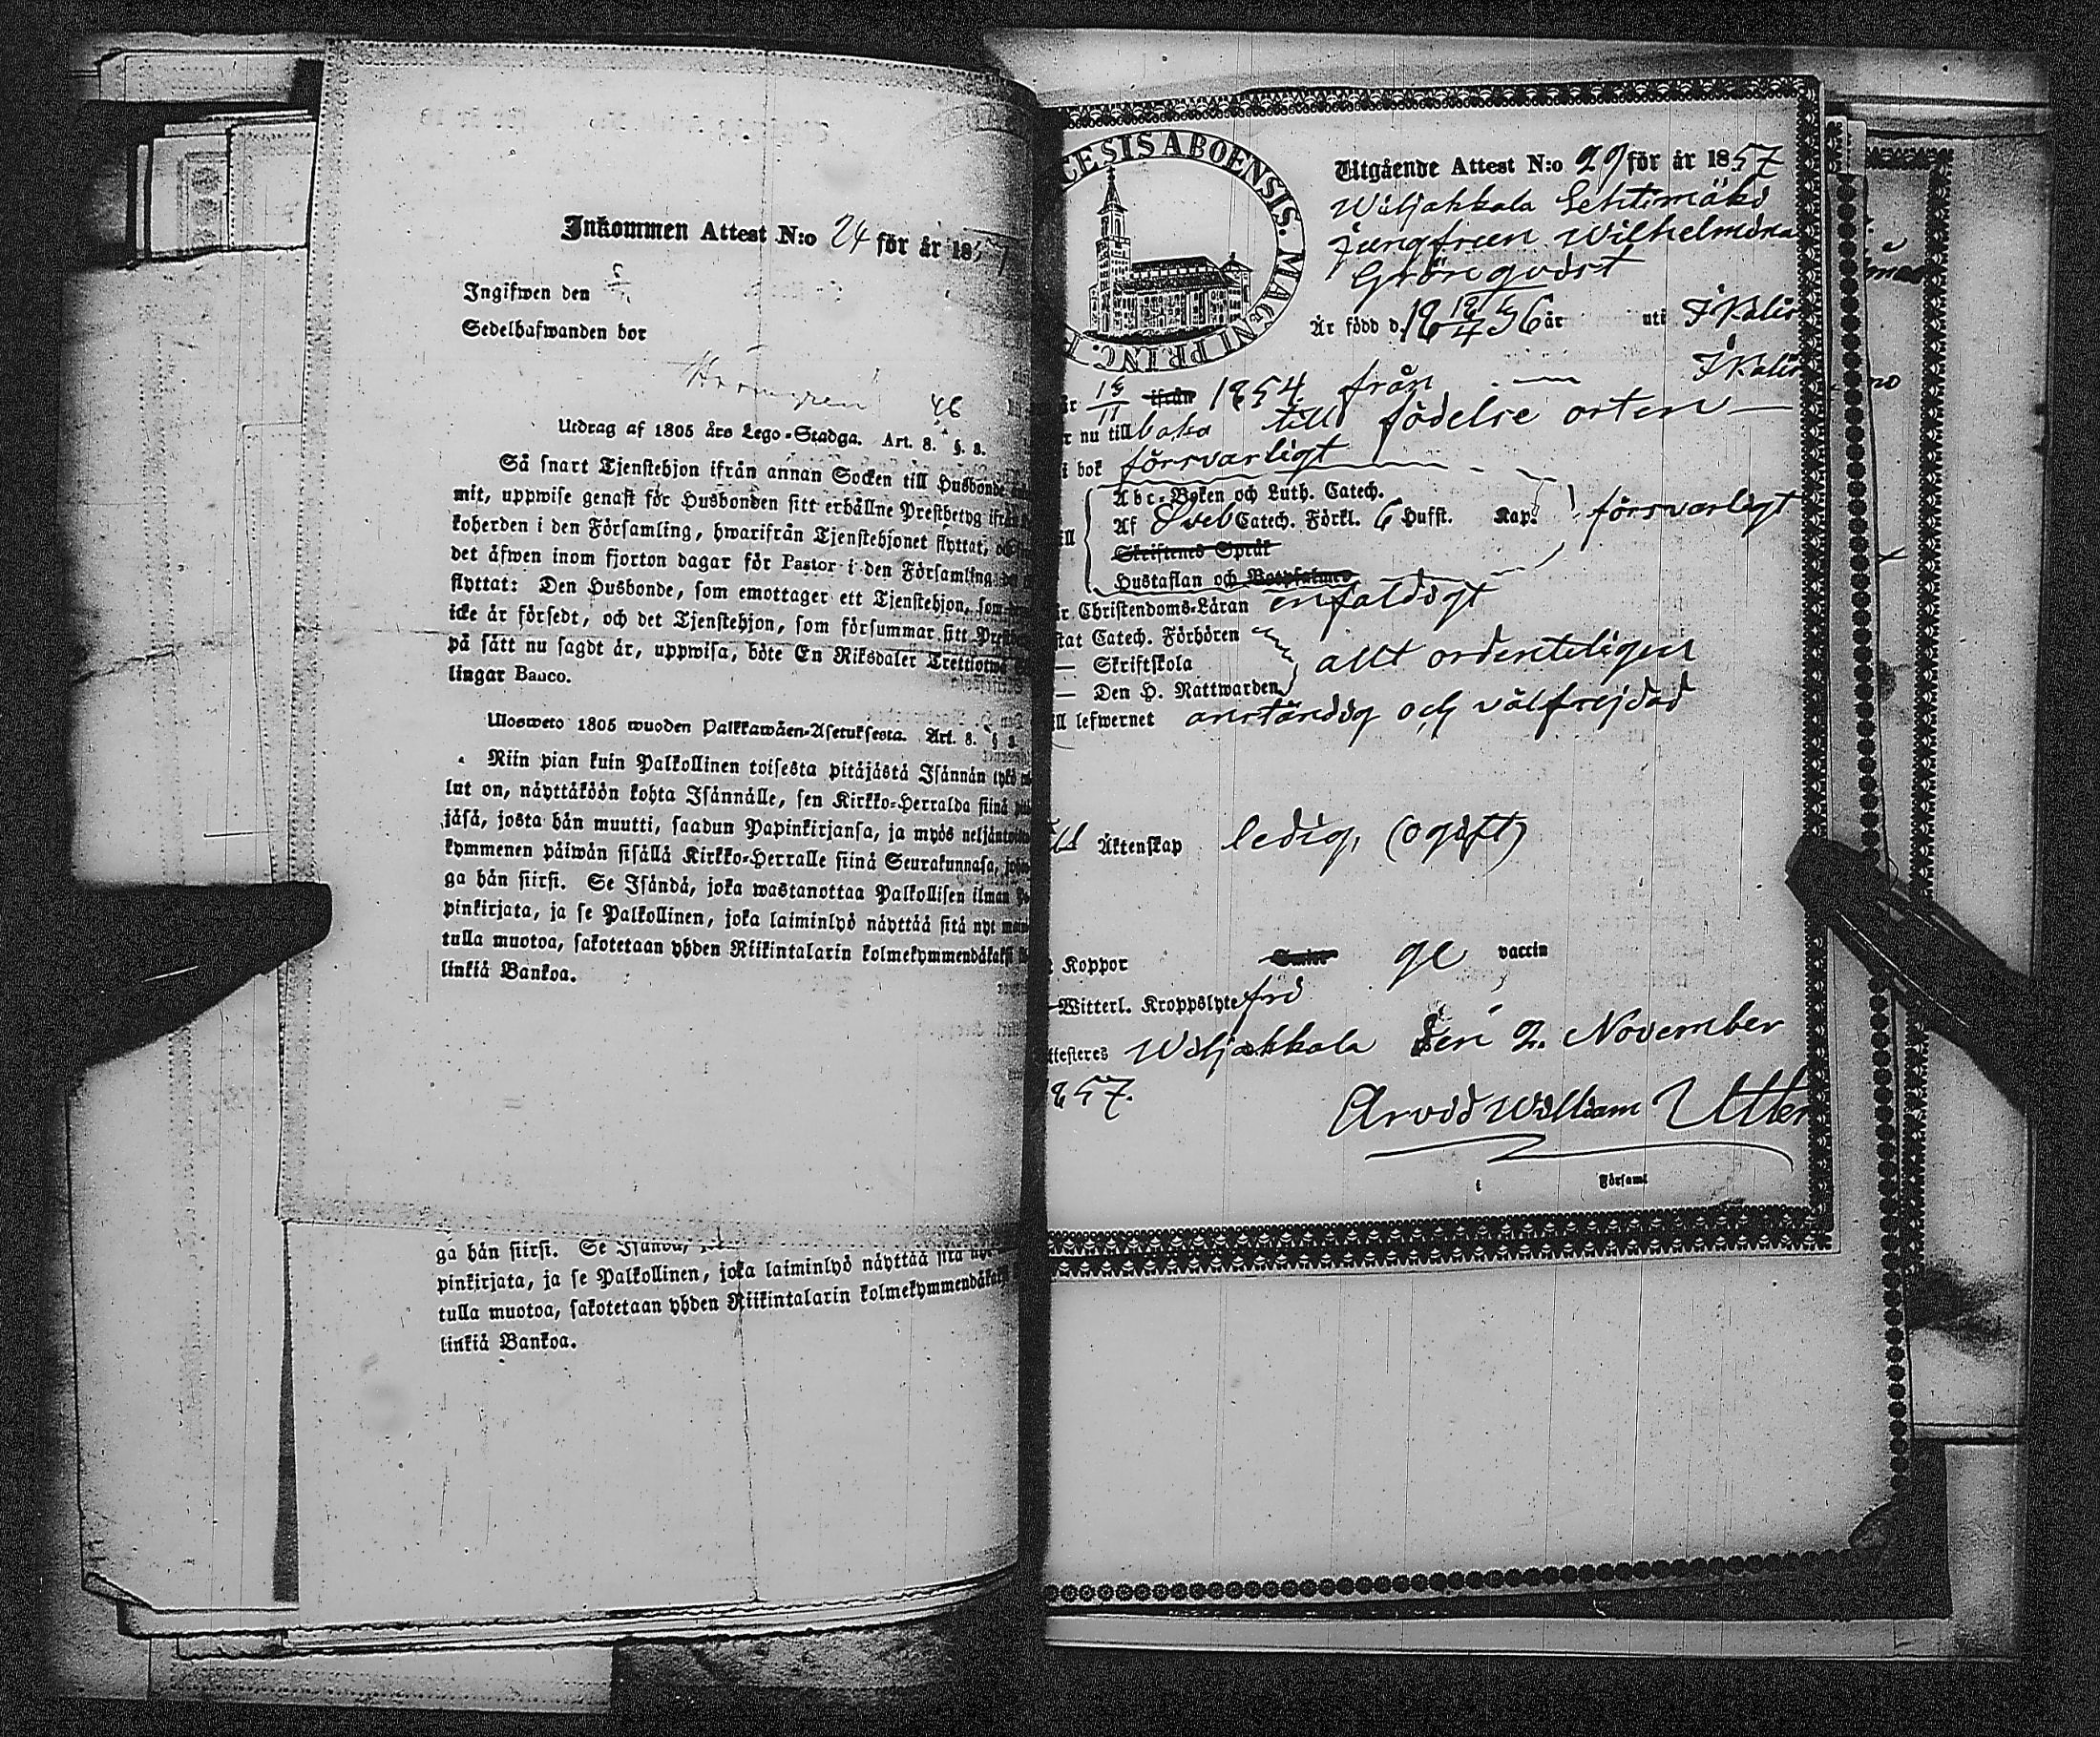 Inkommen Attest N:o 24 för år 1857
Ingifwen den
Sedelhafwanden bor
46
Utdrag af 1805 års Lego-Stadga. Art. 8. §. 8.
Så snart Tjenstehjon ifrån annan Socken till Husbonde
mit, uppwise genast för Husbonden sitt erhållne Prestbetyg ifrån
koherden i den Församling, hwarifrån Tjenstehjonet flyttat,
det äfwen inom fjorton dagar för Pastor i den Församling,
flyttat: Den Husbonde, som emottager ett Tjenstehjon, som
icke är försedt, och det Tjenstehjon, som försummar sitt
på sätt nu sagdt är, uppwisa, böte En Riksdaler Trettiotwå
lingar Banco.
Ulosweto 1805 wuoden Palkkawäen-Asetuksesta. Art. 8. § 8.
Niin pian kuin Palkollinen toisesta pitäjästä Isännän tykö
lut on, näyttäköön kohta Isännälle, sen Kirkko-Herralda siinä
jäsä, josta hän muutti, saadun Papinkirjansa, ja myös neljäntoista
kymmenen päiwän sisällä Kirkko-Herralle siinä Seurakunnasa,
ga hän siirsi. Se Isändä, joka wastanottaa Palkollisen ilman
pinkirjata, ja se Palkollinen, joka laiminlyö näyttää sitä nyt
tulla muotoa, sakotetaan yhden Riikintalarin kolmekymmendäkaksi
linkiä Bankoa.
ga hän siirsi. Se
pinkirjata, ja se Palkollinen, joka laiminlyö näyttää sitä
tulla muotoa, sakotetaan yhden Riikintalarin kolmekymmendäkaksi
linkiä Bankoa.
CESIS ABOENSIS. MAGNI PRINC.
Utgående Attest N:o 29 för år 1857
Wiljakkala Lehtimäki
jungfrun Wilhelmina
Grönqvist
Är född d. 18 år uti Ikalis
15/11 ifrån 1854 från — Ikalis
r nu tillbaka till födelse orten —
i bok försvarligt
Abc-Boken och Luth. Catech.
Af Sveb Catech. Förkl. 6 Hufst. Kap. försvarligt
Skriftenes Språk
Hustaflan och Botpsalmes
Christendoms-Läran enfaldigt
tat Catech. Förhören
— Skriftskola allt ordenteligen
— Den H. Nattwarden
ll lefwernet anständig och välfrejdad
Äktenskap ledig, (ogift)
Koppor vaccin
Witterl. Kroppslyte fri
ttesteres Wiljakkala den 2. November
857.
Arvid William Utter
i Församl